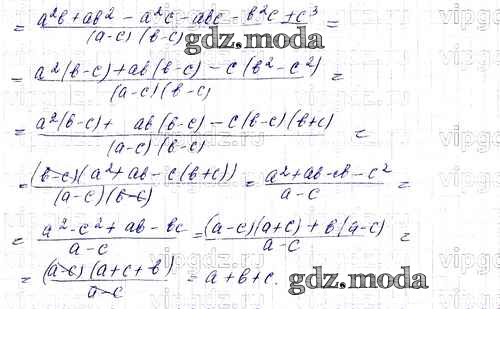 = a²b + ab² - a²c - abc - b²c + c³ / (a-c)(b-c) =
gdz.moda
= a²(b-c) + ab(b-c) - c(b²-c²) / (a-c)(b-c) =
= a²(b-c) + ab(b-c) - c(b-c)(b+c) / (a-c)(b-c) =
= (b-c)(a²+ab-c(b+c)) / (a-c)(b-c) = a²+ab-cb-c² / a-c =
= a²-c²+ab-bc / a-c = (a-c)(a+c)+b(a-c) / a-c =
= (a-c)(a+c+b) / a-c = a+b+c.
gdz.moda